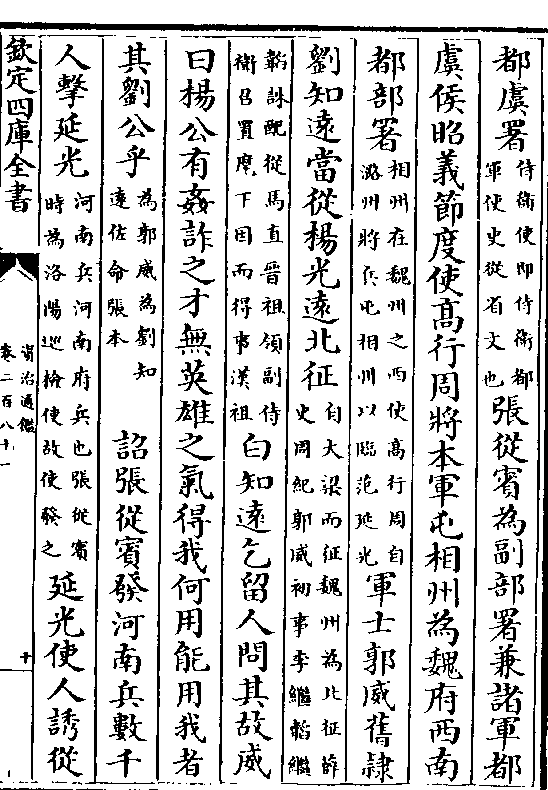 都虞署侍衛使即侍衛都
軍使史從省文也張從賓為副部署兼諸軍都
虞侯昭義節度使高行周將本軍屯相州為魏府西南
都部署相州在魏州之西使高行周自
潞州將兵屯相州以臨范延光軍士郭威舊隸
劉知遠當從楊光遠北征自大梁而征魏州為北征薛
史周紀郭威初事李繼韜繼
韜誅配從馬直晉祖領副侍
衛召置麾下因而得事漢祖白知遠乞留人問其故威
曰楊公有姦詐之才無英雄之氣得我何用能用我者
其劉公乎為郭威為劉知
遠佐命張本詔張從賓發河南兵數千
人擊延光河南兵河南府兵也張從賓
時為洛陽巡檢使故使發之延光使人誘從
欽定四庫全書
資治通鑑
卷二百八十一
十